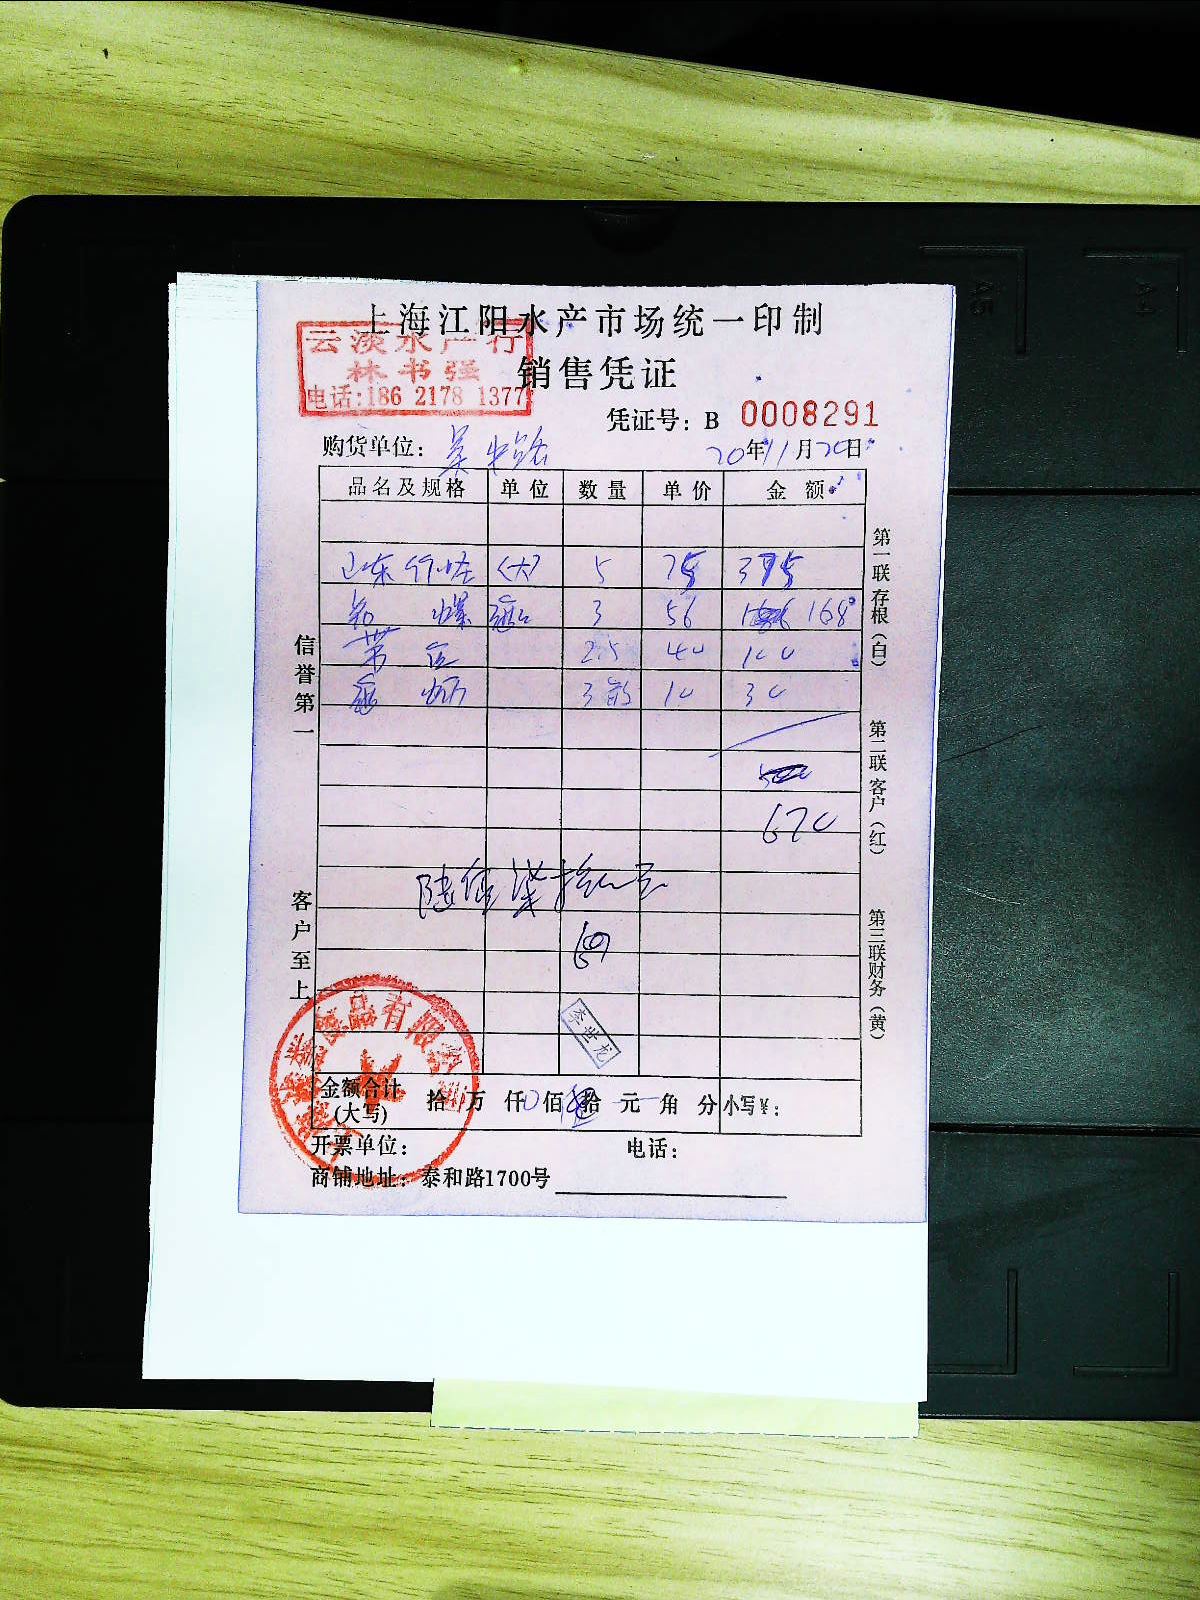 上海江阳水产市场统一印制
云淡水产行
林书强
电话:186 2178 1377
销售凭证
凭证号: B 0008291
购货单位:
20年11月20日
品名及规格 单位 数量 单价 金额
山东 <大> 5 75 375
3 56 168
2.5 40 100
3 10 30
670
陆佰柒拾元
李世龙
金额合计
(大写) 拾 万 仟 佰 拾 元 角 分 小写¥:
开票单位: 电话:
商铺地址: 泰和路1700号
信誉第一
客户至上
第一联 存根(白)
第二联 客户(红)
第三联 财务(黄)
食品有限公司